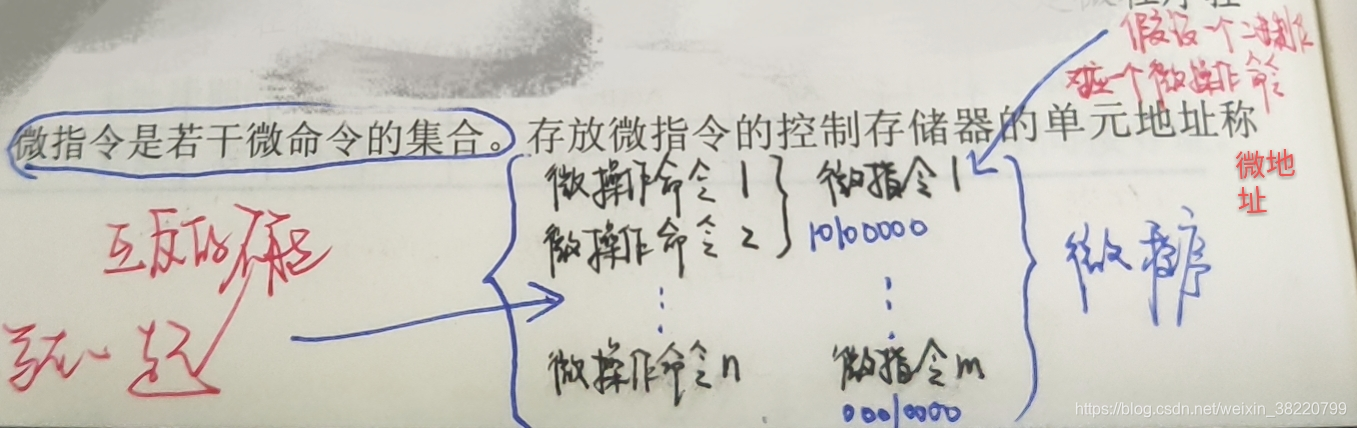 假设一个二进制位
对应一个微操作命令
微指令是若干微命令的集合。存放微指令的控制存储器的单元地址称
微地
址
微操作命令1 微指令1
微操作命令2 10100000
互斥的不能
写在一起
微程序
微操作命令n 微指令m
00010000
https://blog.csdn.net/weixin_38220799